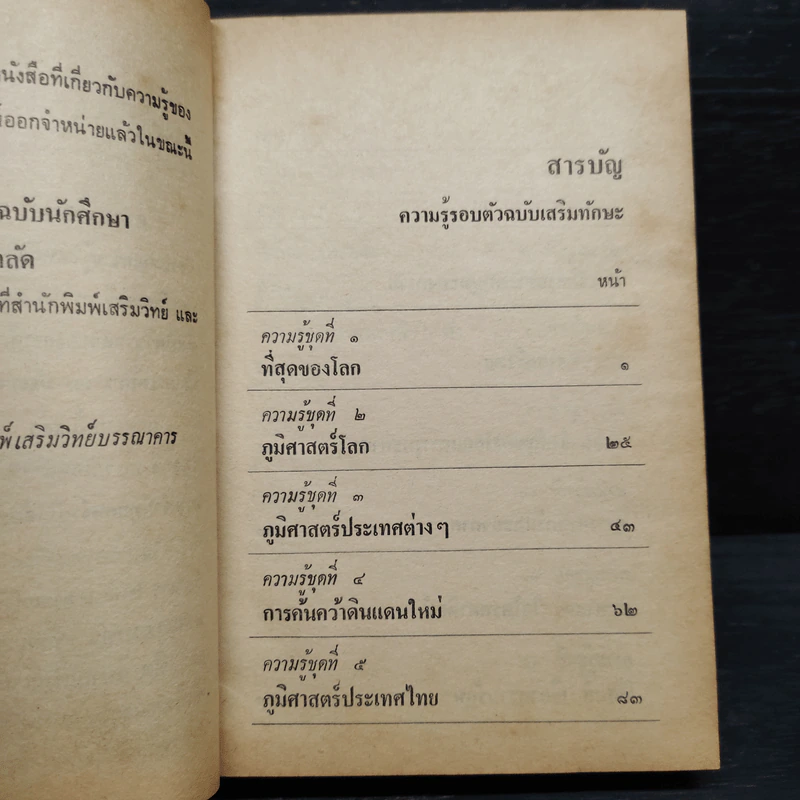 นังสือที่เกี่ยวกับความรู้ของ
ออกจำหน่ายแล้วในขณะนี้
ฉบับนักศึกษา
ลัด
ที่สำนักพิมพ์เสริมวิทย์ และ
พ์เสริมวิทย์บรรณาคาร
สารบัญ
ความรู้รอบตัวฉบับเสริมทักษะ
หน้า
ความรู้ชุดที่ ๑
ที่สุดของโลก ๑
ความรู้ชุดที่ ๒
ภูมิศาสตร์โลก ๒๕
ความรู้ชุดที่ ๓
ภูมิศาสตร์ประเทศต่าง ๆ ๔๓
ความรู้ชุดที่ ๔
การค้นคว้าดินแดนใหม่ ๖๒
ความรู้ชุดที่ ๕
ภูมิศาสตร์ประเทศไทย ๘๓